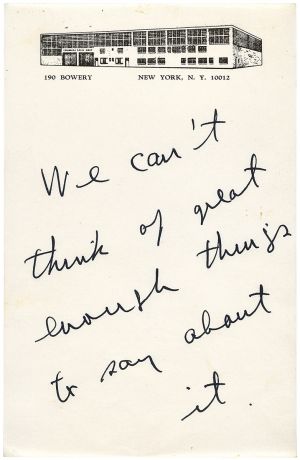 190 BOWERY NEW YORK, N. Y. 10012
We can't
think of great
enough things
to say about
it.